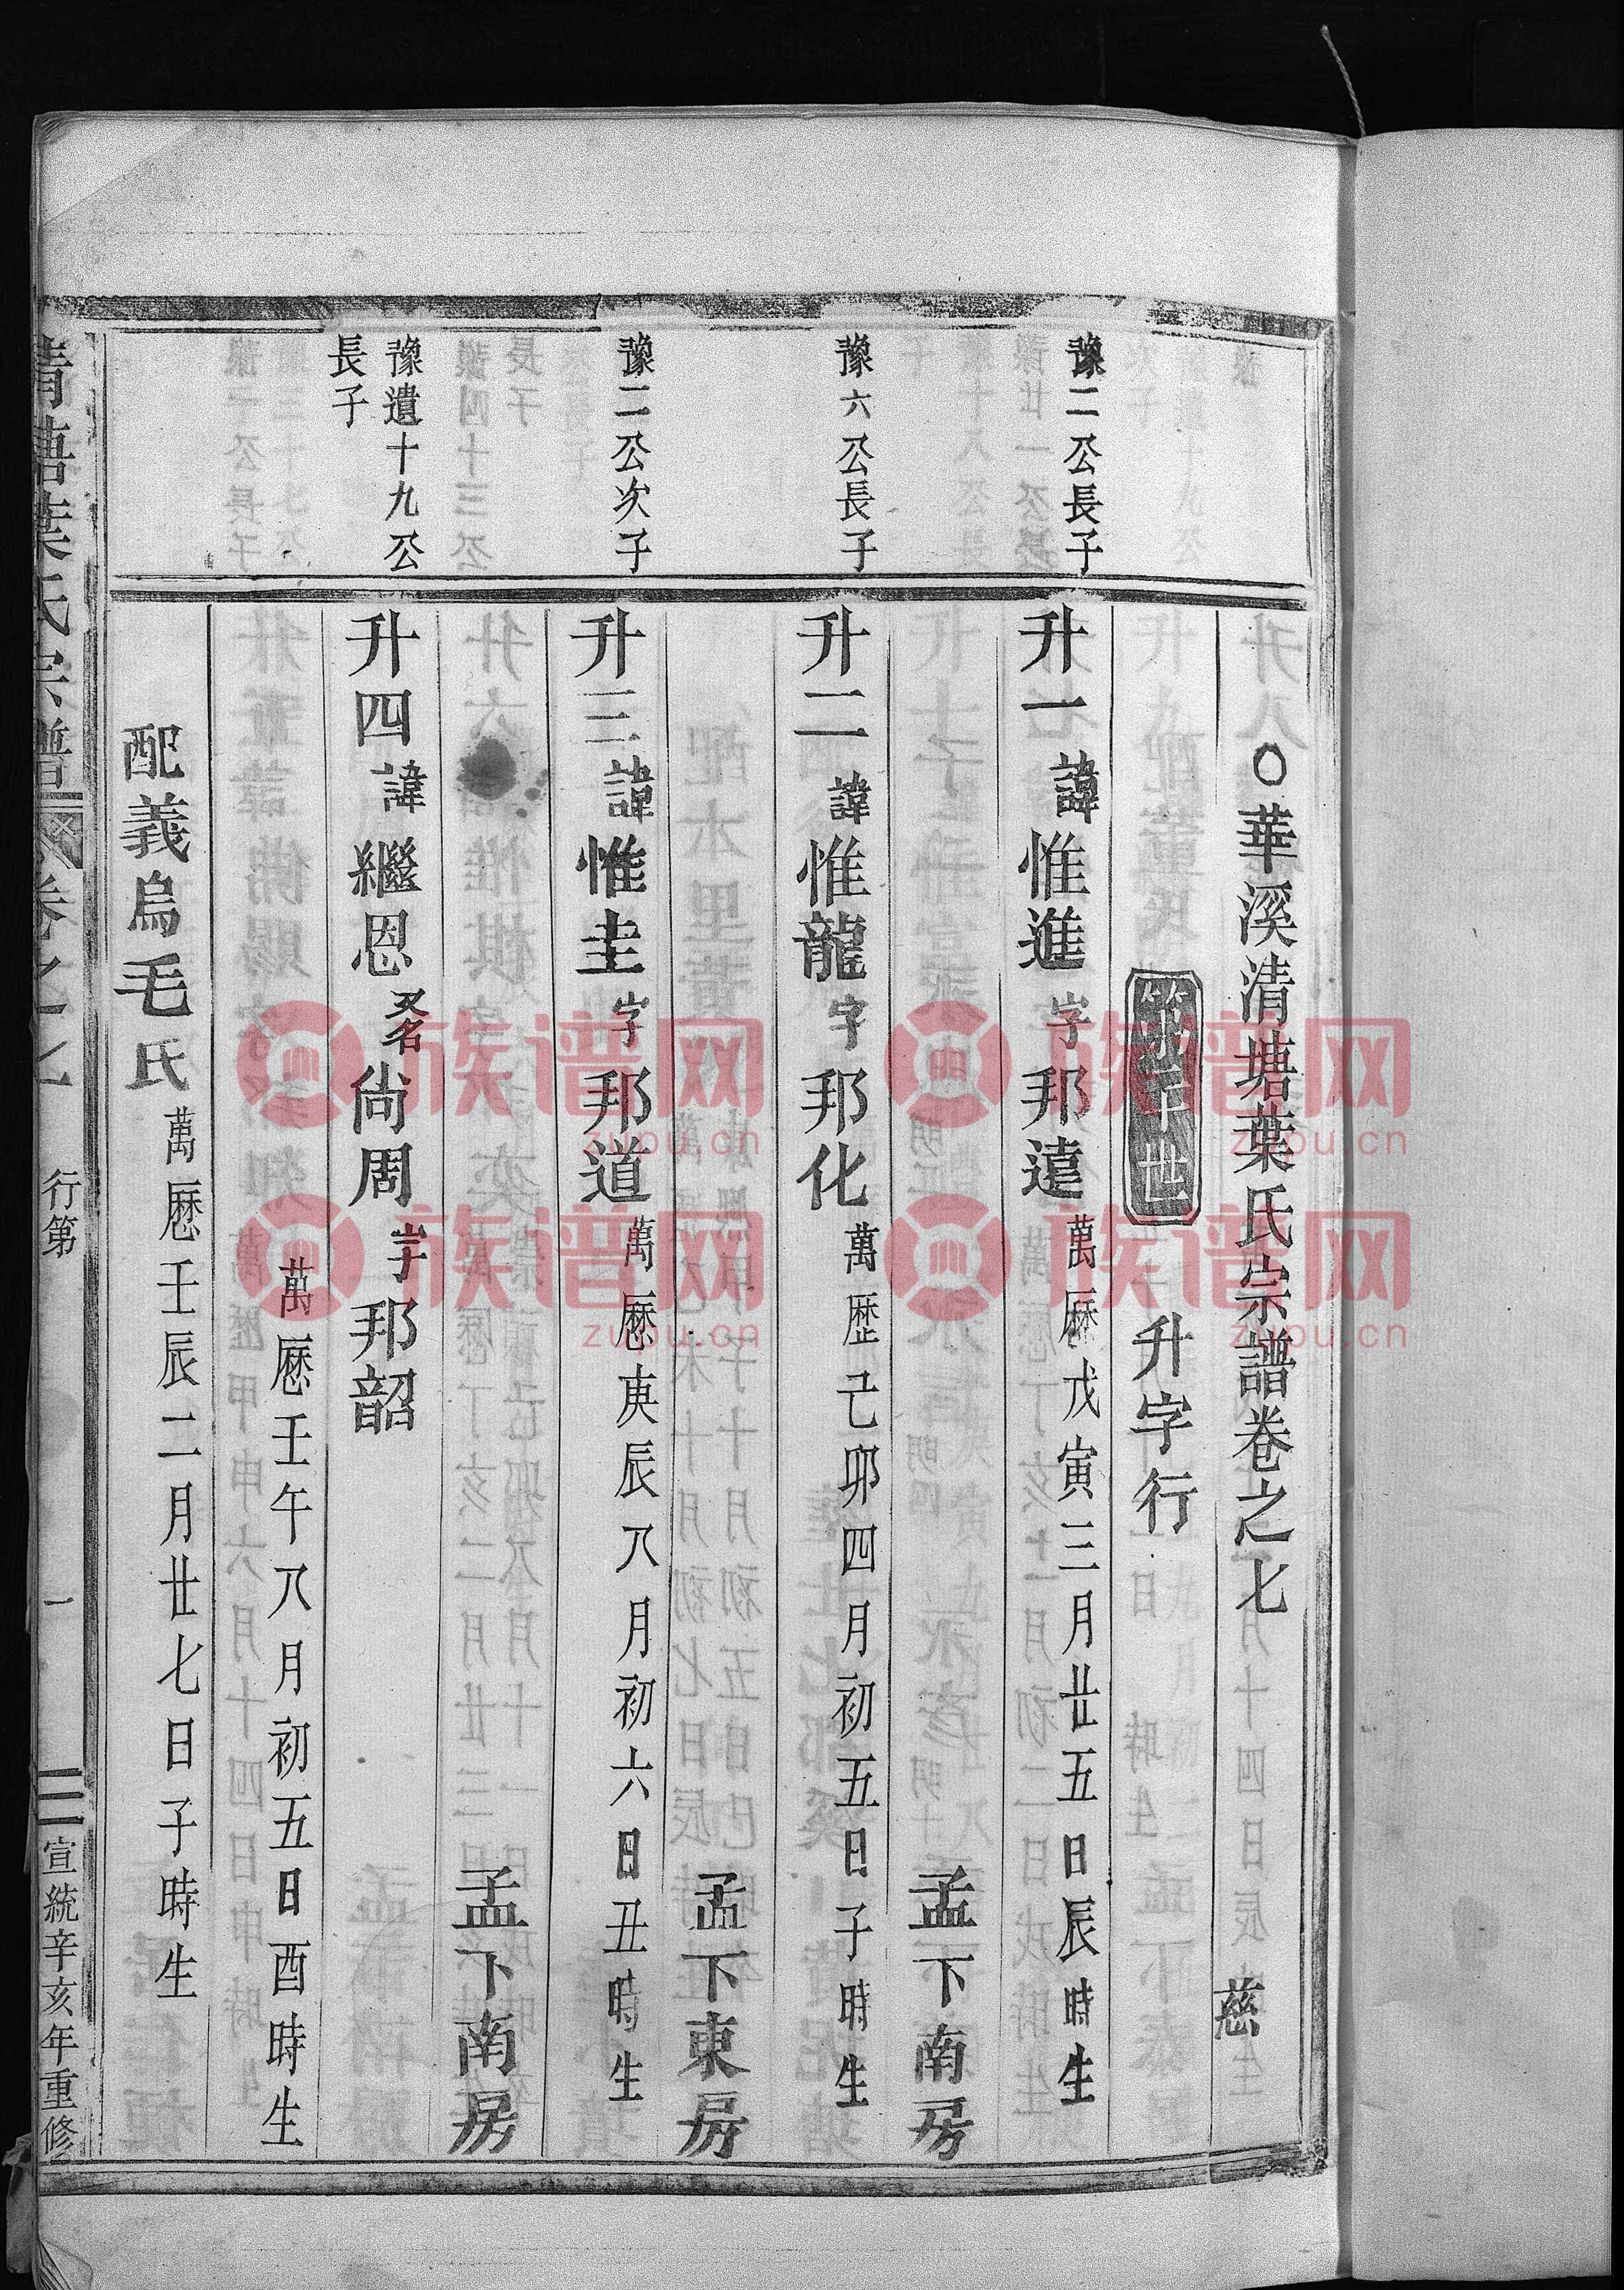 ○華溪清塘葉氏宗譜卷之七
慈
第 世
升字行
豫二公長子
升一諱惟進字邦遠萬厯戊寅三月廿五日辰時生
孟下南房
豫六公長子
升二諱惟龍字邦化萬歷己卯四月初五日子時生
孟下東房
豫二公次子
升三諱惟圭字邦道萬厯庚辰八月初六日丑時生
孟下南房
豫遺十九公
長子
升四諱繼恩又名尚周字邦韶
萬厯壬午八月初五日酉時生
配義烏毛氏萬厯壬辰二月廿七日子時生
清塘葉氏宗譜
卷之七
行第
一
宣統辛亥年重修
族谱网
zupu.cn
族谱网
zupu.cn
族谱网
zupu.cn
族谱网
zupu.cn